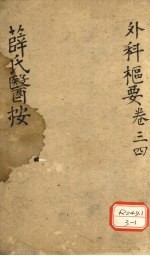 外科樞要卷三四
薛氏醫按
R2491
3-1